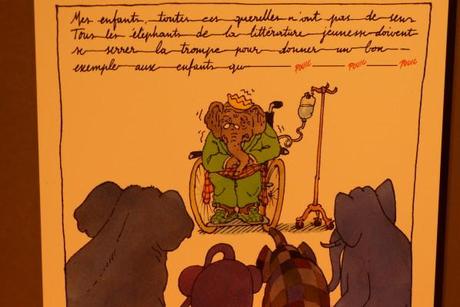 Mes enfants, toutes ces querelles n'ont pas de sens
Tous les éléphants de la littérature jeunesse doivent
se serrer la trompe pour donner un bon
exemple aux enfants qu POUIC POUIC POUIC